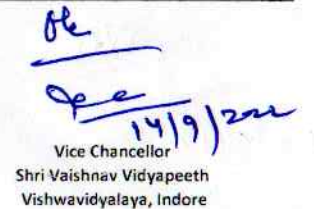 Ok
14/9/2022
Vice Chancellor
Shri Vaishnav Vidyapeeth
Vishwavidyalaya, Indore